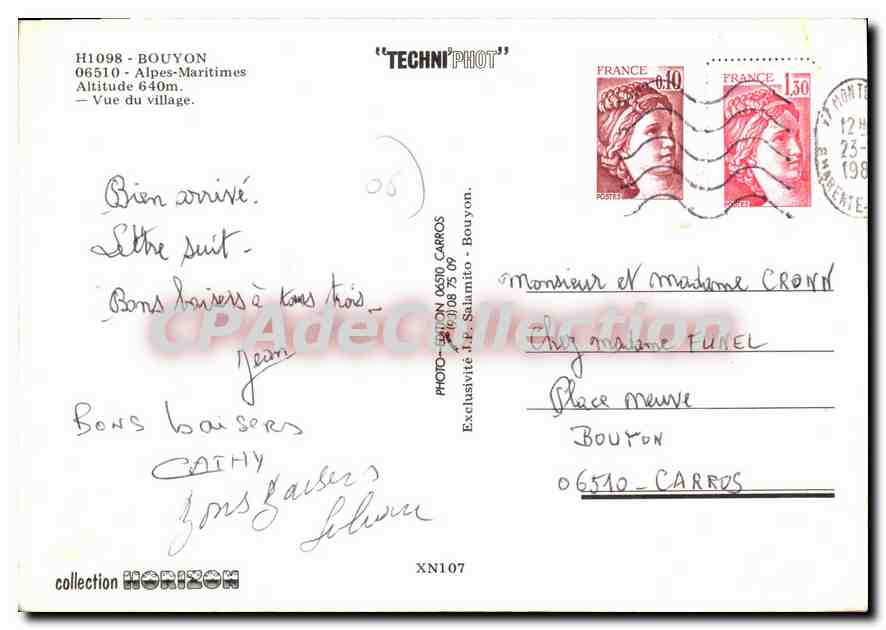 H1098 - BOUYON
06510 - Alpes-Maritimes
Altitude 640m.
— Vue du village.
"TECHNI'PHOT"
FRANCE
0,10
POSTES
FRANCE
1,30
77 MONTE
12H
23-
198
CHARENTE-
Bien arrivé.
Lettre suit -
Bons baisers à tous trois -
Jean
Bons baisers
CATHY
Bons Baisers
06
PHOTO-EDITION 06510 CARROS
(93) 08 75 09
Exclusivité J.P. Salamito - Bouyon.
Monsieur et Madame CRONN
Chez Madame FUNEL
Place Neuve
BOUYON
06510 - CARROS
CPAdeCollection.com
XN107
collection HORIZON